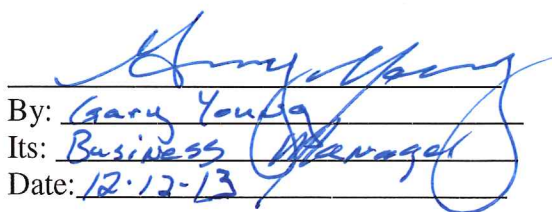 Gary Young
By: Gary Young
Its: Business Manager
Date: 12·12-13